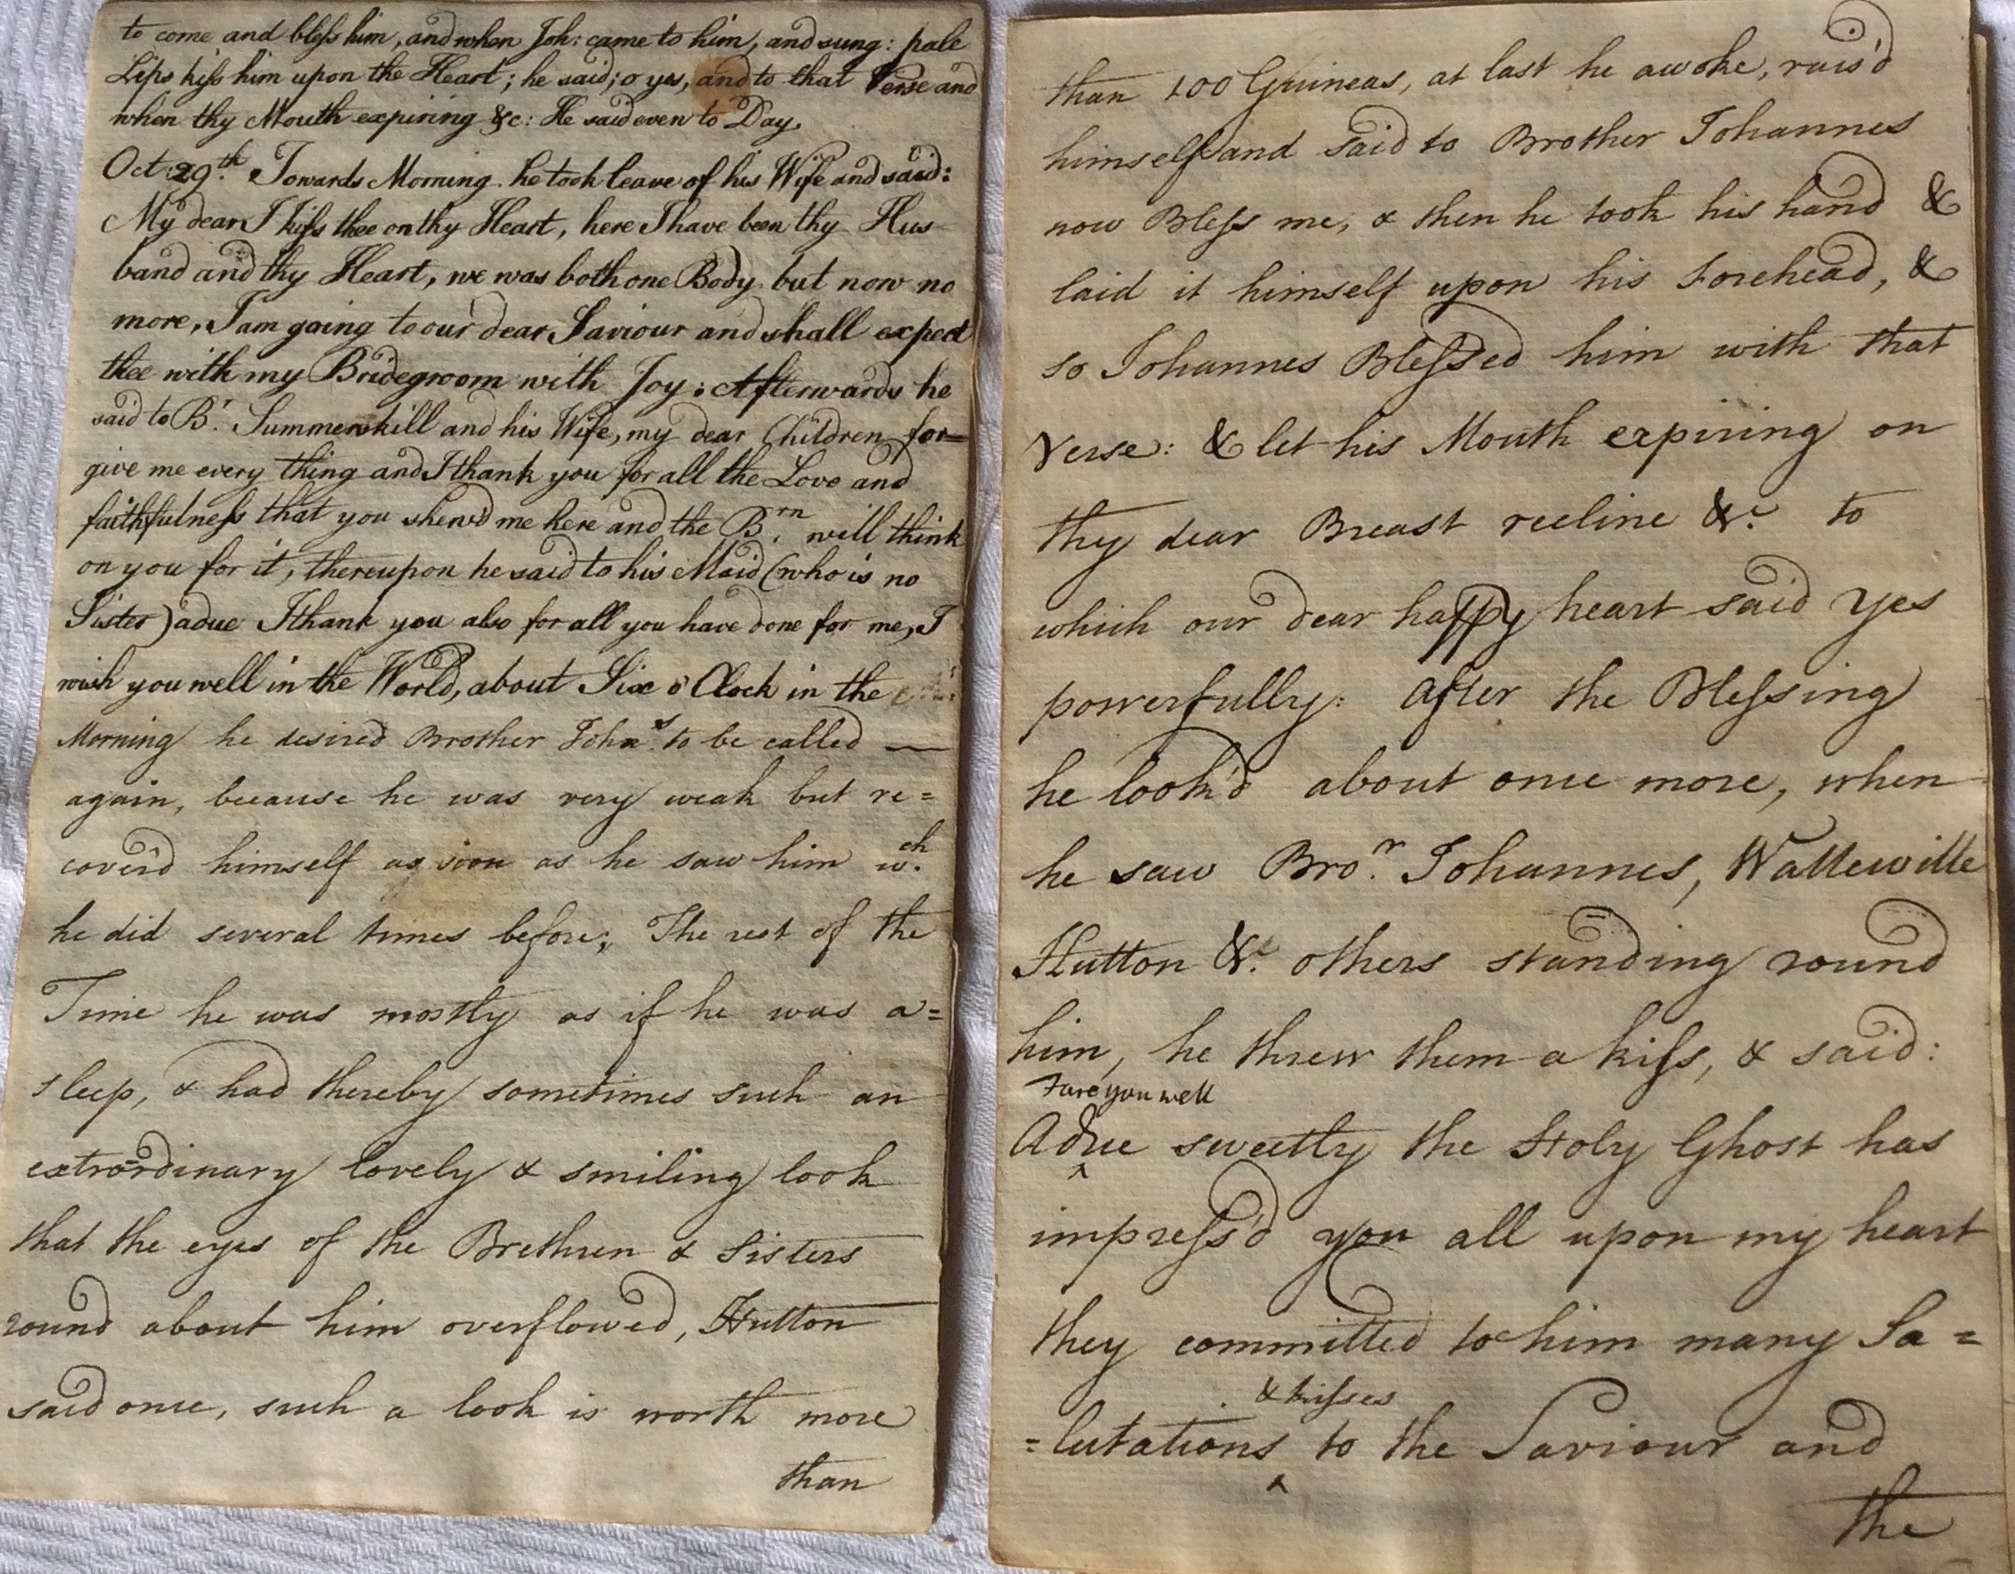 to come and bless him, and when Joh: came to him, and sung: pale
Lips kiss him upon the Heart; he said; o yes, and to that Verse and
when thy Mouth expiring &c: He said even to Day.
Oct: 29th. Towards Morning he took leave of his Wife and said:
My dear I kiss thee on thy Heart, here I have been thy Hus
band and thy Heart, we was both one Body but now no
more, I am going to our dear Saviour and shall expect
thee with my Bridegroom with Joy: Afterwards he
said to Br. Summerskill and his Wife, my dear Children for=
give me every thing and I thank you for all the Love and
faithfulness that you shew'd me here and the Brn. will think
on you for it, thereupon he said to his Maid (who is no
Sister) adue I thank you also for all you have done for me, I
wish you well in the World, about Six o'Clock in the
Morning he desired Brother Johns. to be called —
again, because he was very weak but re=
cover'd himself as soon as he saw him wch.
he did several times before; The rest of the
Time he was mostly as if he was a=
sleep, & had thereby sometimes such an
extraordinary lovely & smiling look
that the eyes of the Brethren & Sisters
round about him overflowed, Hutton
said once, such a look is worth more
than
than 100 Guineas, at last he awoke, rais'd
himself and said to Brother Johannes
now Bless me, & then he took his hand &
laid it himself upon his Forehead, &
so Johannes Blessed him with that
Verse: & let his Mouth expiring on
thy dear Breast recline &c. to
which our dear happy heart said yes
powerfully: after the Blessing
he look'd about once more, when
he saw Bror. Johannes, Wattewille
Hutton &c. others standing round
him, he threw them a kiss, & said:
Fare you well
Adue ^ sweetly the Holy Ghost has
impress'd you all upon my heart
they committed to him many Sa=
& kisses
=lutations ^ to the Saviour and
the